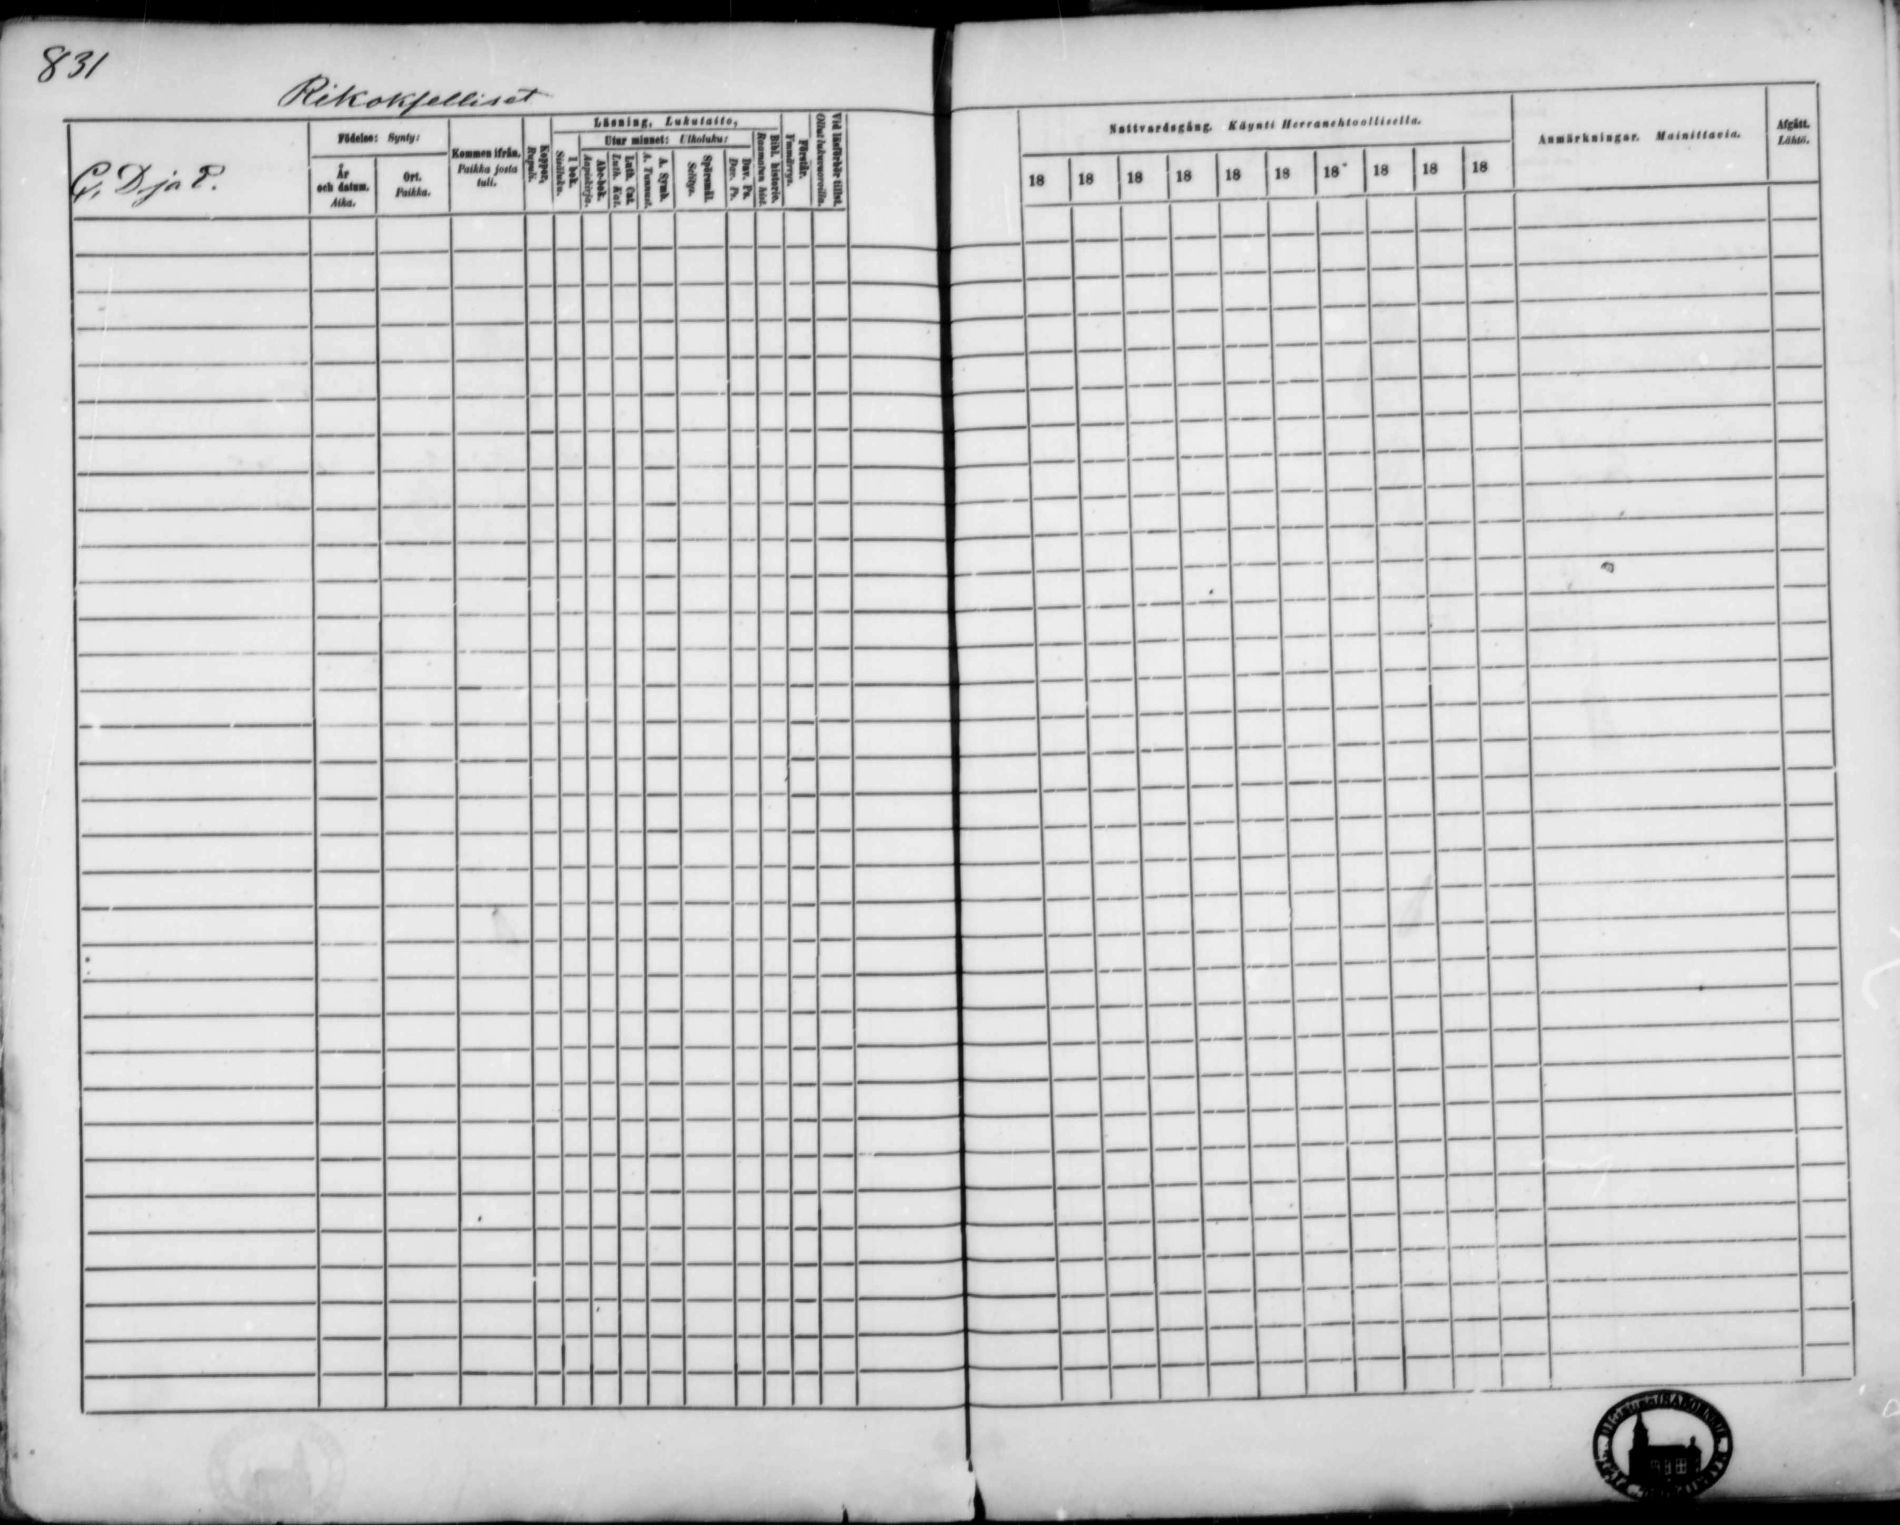 831
Rikokselliset
C, D ja E.
Födelse: Synty:
År och datum. Aika.
Ort. Paikka.
Kommen ifrån.
Paikka josta tuli.
Koppor. Rupuli.
Läsning, Lukutaito,
I bok. Sisäluku.
Utur minnet: Ulkoluku:
Abc-bok. Aapiskirja.
Luth. Cat. Luth. Kat.
A. Symb. A. Tunnust.
Spörsmål. Selitys.
Dav. Ps. Dav. Ps.
Bibl. historia. Raamatun hist.
Förstår. Ymmärrys.
Vid läsförhör tillst. Ollut lukuvuoroilla.
Nattvardsgång. Käynti Herranehtoollisella.
18 18 18 18 18 18 18 18 18 18
Anmärkningar. Mainittavia.
Afgått. Lähtö.